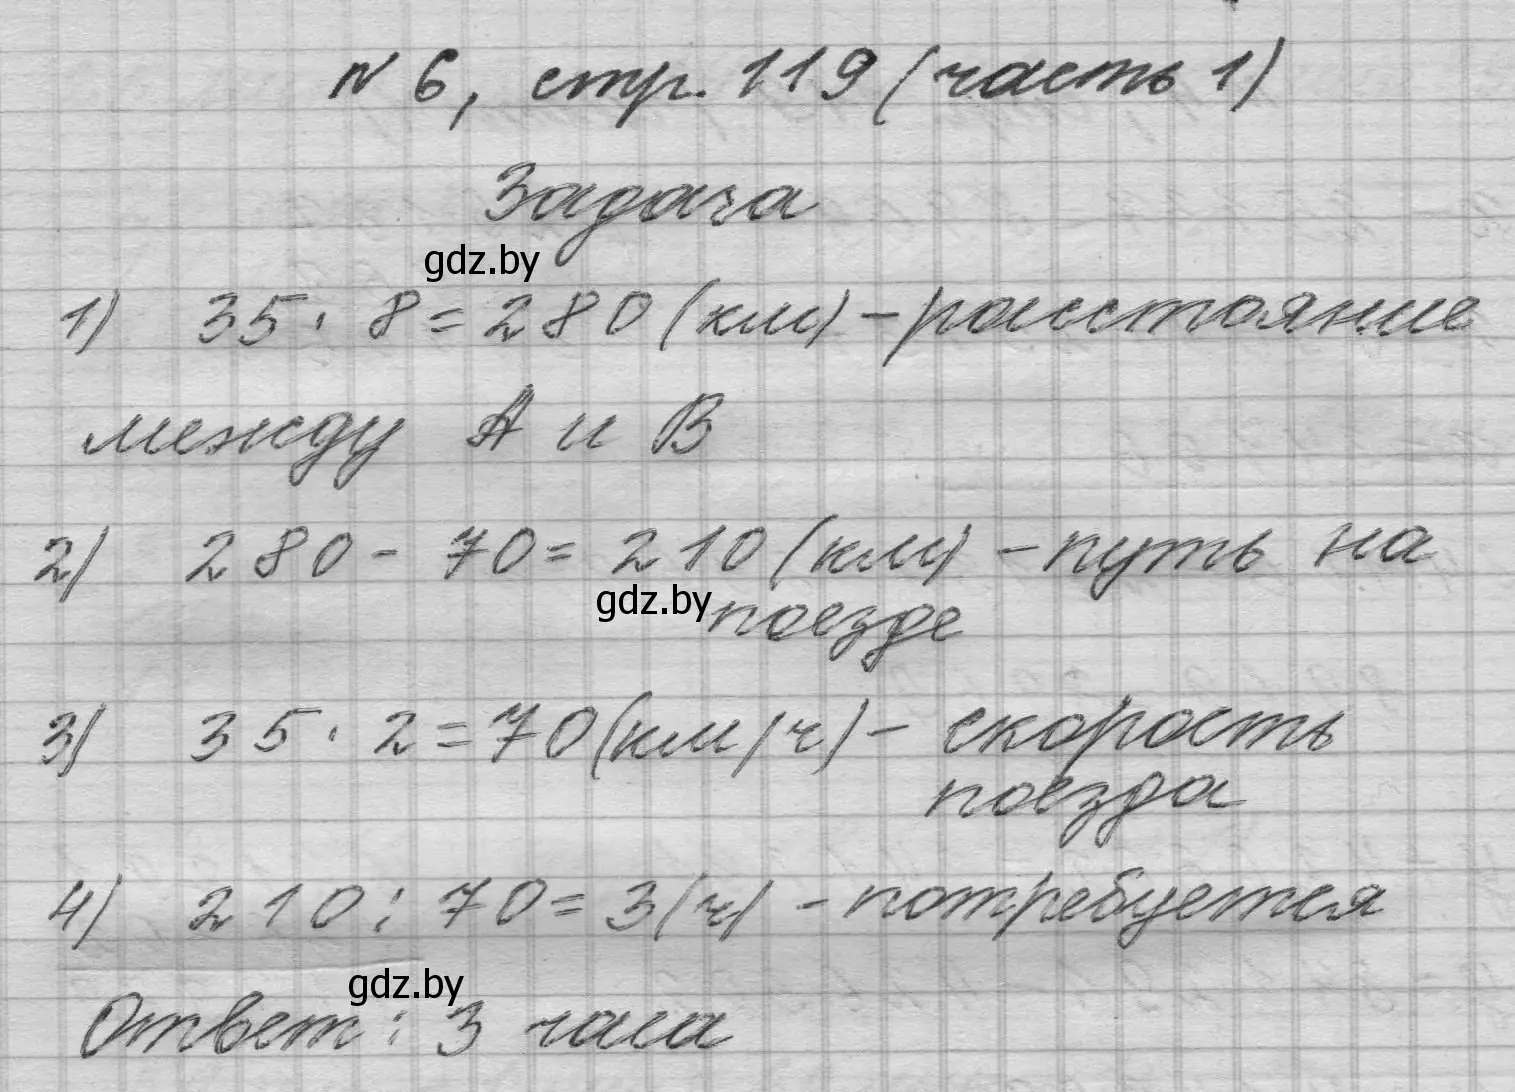 № 6, стр. 119 (часть 1)
Задача
gdz.by
1) 35 · 8 = 280 (км) - расстояние
между А и В
2) 280 - 70 = 210 (км) - путь на
gdz.by
поезде
3) 35 · 2 = 70 (км/ч) - скорость
поезда
4) 210 : 70 = 3 (ч) - потребуется
gdz.by
Ответ: 3 часа